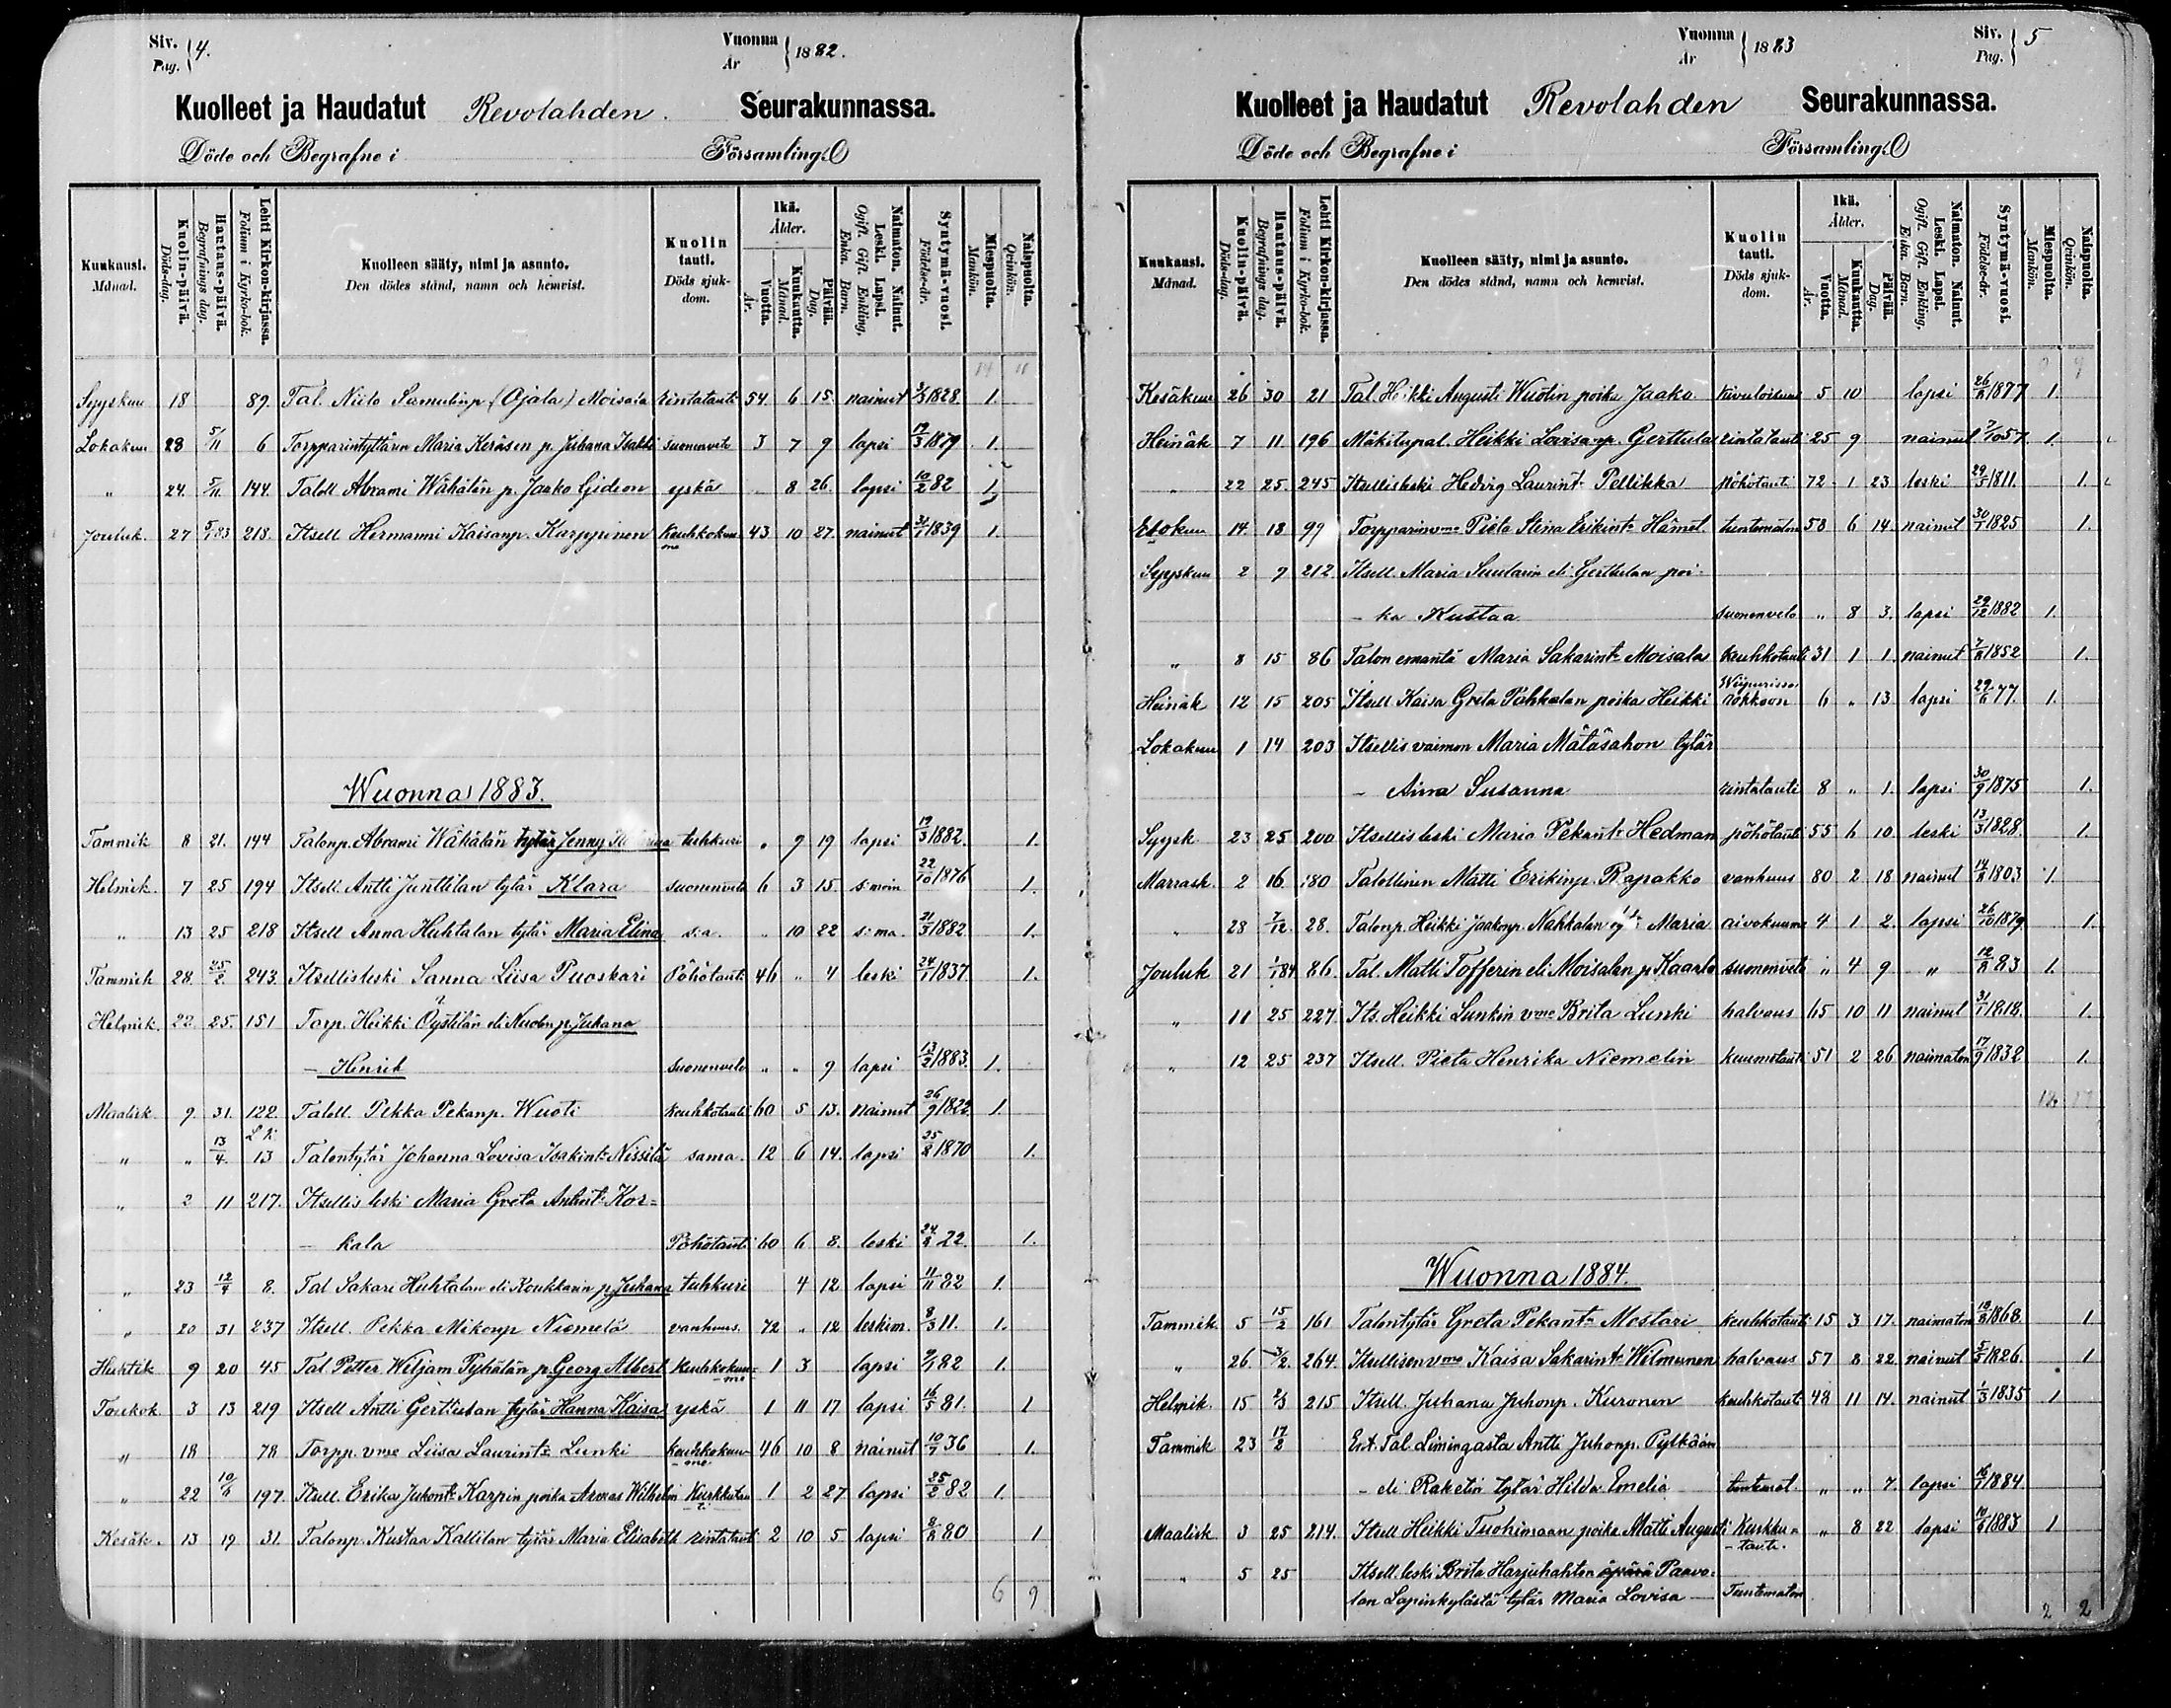 Siv. Pag. } 4.
Vuonna År } 1882.
Kuolleet ja Haudatut Revolahden. Seurakunnassa.
Döde och Begrafne i Församling.
Kuukausi. Månad.
Kuolin-päivä. Döds-dag.
Hautaus-päivä. Begrafnings dag.
Lehti Kirkon-kirjassa. Folium i Kyrko-bok.
Kuolleen sääty, nimi ja asunto. Den dödes stånd, namn och hemvist.
Kuolin tauti. Döds sjukdom.
Ikä. Ålder.
Vuotta. År.
Kuukautta. Månad.
Päivää. Dag.
Naimaton. Nainut. Leski. Lapsi. Ogift. Gift. Enkling, Enka. Barn.
Syntymä-vuosi. Födelse-år.
Miespuolta. Mankön.
Naispuolta. Qvinkön.
14 11
Syyskuu 18 89. Tal. Niilo Samulinp (Ojala) Moisala rintatauti 54 6 15. nainut 3/3 1828 1.
Lokakuu 28 5/11 6 Torpparintyttären Maria Keräsen p. Juhana Isakki suonenveto 3 7 9 lapsi 19/3 1879 1.
" 24. 5/11 144. Taloll Abrami Wähälän p. Jaako Gideon yskä 8 26. lapsi 10/2 82 1
Jouluk. 27 5/1 83 218. Itsell Hermanni Kaisanp. Karppinen Keuhkokuume 43 10 27. nainut 31/1 1839 1.
Wuonna 1883.
Tammik 8 21. 144 Talonp. Abrami Wähälän tytär Jenny tuhkuri " 9 19 lapsi 19/3 1882. 1.
Helmik. 7 25 194 Itsell. Antti Junttilan tytär Klara suonenveto 6 3 15 s. moin 22/10 1876 1.
" 13 25 218 Itsell Anna Huhtalan tytär Maria Elina s:a. " 10 22 s: ma. 21/3 1882 1.
Tammik 28. 25/2. 243. Itsellisleski Sanna Liisa Puoskari Pöhötauti 46 " 4 leski 24/1 1837. 1.
Helmik. 22. 25. 151 Torp. Heikki Öystilän eli Nuolen p. Juhana
- Henrik suonenveto " " 9 lapsi 13/2 1883. 1.
Maalisk. 9. 31. 122. Taloll. Pekka Pekanp. Wuoti keuhkotauti 60 5 13. nainut 26/9 1822. 1.
" " 13/4. L K. 13 Talontytär Johanna Lovisa Isakint: Nissilä sama. 12 6 14. lapsi 25/8 1870 1.
" 2 11 217. Itsellis leski Maria Greta Antint: Kor=
- kala Pöhötauti 60 6 8. leski 24/8 22. 1.
" 23 12/4 8. Tal Sakari Huhtalan eli Koukkarin p. Juhana tuhkuri 4 12 lapsi 11/11 82 1.
" 20 31 237 Itsell. Pekka Mikonp Niemelä vanhuus. 72 " 12 leskim. 8/3 11. 1.
Huhtik 9 20 45 Tal Petter Weljam Pyhälän p. Georg Albert keuhkokuume 1 3 lapsi 9/1 82 1.
Toukok. 3 13 219 Itsell Antti Gerttulan tytär Hanna Kaisa yskä 1 11 17 lapsi 16/5 81. 1
" 18 78 Torpp. vmo Liisa Laurint: Lunki keuhkokuume. 46 10 8 nainut 10/7 36 1.
" 22 10/6 197. Itsell. Erika Juhont: Karpin poika Armas Wilhelm Kurkkutauti 1 2 27 lapsi 25/2 82 1.
Kesäk. 13 19 31. Talonp. Kustaa Kallilan tytär Maria Elisabeth rintatauti 2 10 5 lapsi 8/8 80 1
6 9
Vuonna År } 1883
Siv. Pag. } 5
Kuolleet ja Haudatut Revolahden Seurakunnassa.
Döde och Begrafne i Församling.
Kuukausi. Månad.
Kuolin-päivä. Döds-dag.
Hautaus-päivä. Begrafnings dag.
Lehti Kirkon-kirjassa. Folium i Kyrko-bok.
Kuolleen sääty, nimi ja asunto. Den dödes stånd, namn och hemvist.
Kuolin tauti. Döds sjukdom.
Ikä. Ålder.
Vuotta. År.
Kuukautta. Månad.
Päivää. Dag.
Naimaton. Nainut. Leski. Lapsi. Ogift. Gift. Enkling, Enka. Barn.
Syntymä-vuosi. Födelse-år.
Miespuolta. Mankön.
Naispuolta. Qvinkön.
Kesäkuu 26 30 21 Tal. Heikki Augusti Wuotin poika Jaako kivuloisuus 5 10 lapsi 26/8 1877 1.
Heinäk 7 11 196 Mäkitupal. Heikki Lovisanp. Gerttula rintatauti 25 9 nainut 1857. 1.
" 22 25. 245 Itsellisleski Hedvig Laurint: Pellikka Pöhötauti 72 1 23 leski 29/5 1811. 1.
Elokuu 14. 18 99 Torpparinvmo Pieta Stina Erikint: Hämel. tuntematon 58 6 14. nainut 30/1 1825 1.
Syyskuu 2 9 212. Itsell. Maria Suutarin eli Gerttulan poi-
- ka Kustaa suonenveto " 8 3. lapsi 29/12 1882 1.
" 8 15 86 Talon emäntä Maria Sakarint: Moisala keuhkotauti 31 1 1. nainut 7/8 1852 1.
Heinäk 12 15 205 Itsell Kaisa Greta Pahkalan poika Heikki Wiipurissa rokkoon 6 " 13 lapsi 29/6 77. 1.
Lokakuu 1 14 203 Itsellis vaimon Maria Mätäsahon tytär
- Aina Susanna rintatauti 8 " 1. lapsi 30/9 1875 1.
Syysk 23 25 200 Itsellis leski Maria Pekant: Hedman pöhötauti 55 6 10 leski 13/3 1828. 1.
Marrask 2 16. 180 Talollinen Matti Erikinp. Rapakko vanhuus 80 2 18 nainut 14/8 1803 1.
" 28 2/12. 28. Talonp. Heikki Jaakonp. Nahkalan Maria aivokuume 4 1 2. lapsi 26/10 1879. 1.
Jouluk 21 1/1 84 86. Tal. Matti Tofferin eli Moisalan p Kaarlo suonenveto " 4 9 " 12/8 83 1.
" 11 25 227. Its. Heikki Lunkin vmo Brita Lunki halvaus 65 10 11 nainut 31/1 1818. 1.
" 12 25 237 Itsell. Pieta Henrika Niemelin kuumetauti 51 2 26 naimaton 17/9 1832 1.
Wuonna 1884.
Tammik 5 15/2 161 Talontytär Greta Pekant: Mestari keuhkotauti 15 3 17. naimaton 18/9 1868. 1
" 26. 3/2. 264. Itsellisen vmo Kaisa Sakarint: Wilmunen halvaus 57 8 22. nainut 5/5 1826. 1
Helmik. 15 2/3 215 Itsell. Juhana Juhonp. Kuronen keuhkotauti 48 11 14. nainut 1/3 1835 1
Tammik 23 17/2 Ent. Tal. Limingasta Antti Juhonp. Pylkään
- eli Raketin tytär Hilda Emelia tuntemat. " " 7. lapsi 16/1 1884.
Maalisk 3 25 214. Itsell Heikki Tuohimaan poika Matti Augusti Kurkku- tauti. " 8 22 lapsi 10/6 1883 1
" 5 25 Itsell. leski Brita Harjuhahton Paavo-
lan Lapinkylästä tytär Maria Lovisa - Tuntematon
2 2